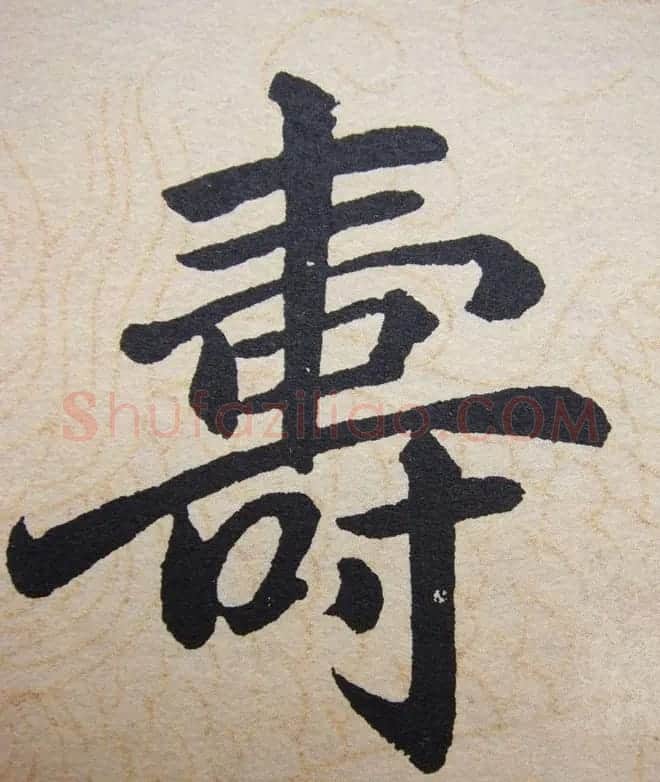 壽
Shufaziliao.COM